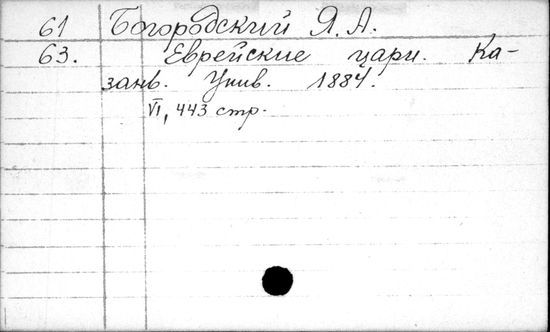 61 Богородский Я. А.
63. Еврейские цари. Ка-
зань. Унив. 1884.
VI, 443 стр.